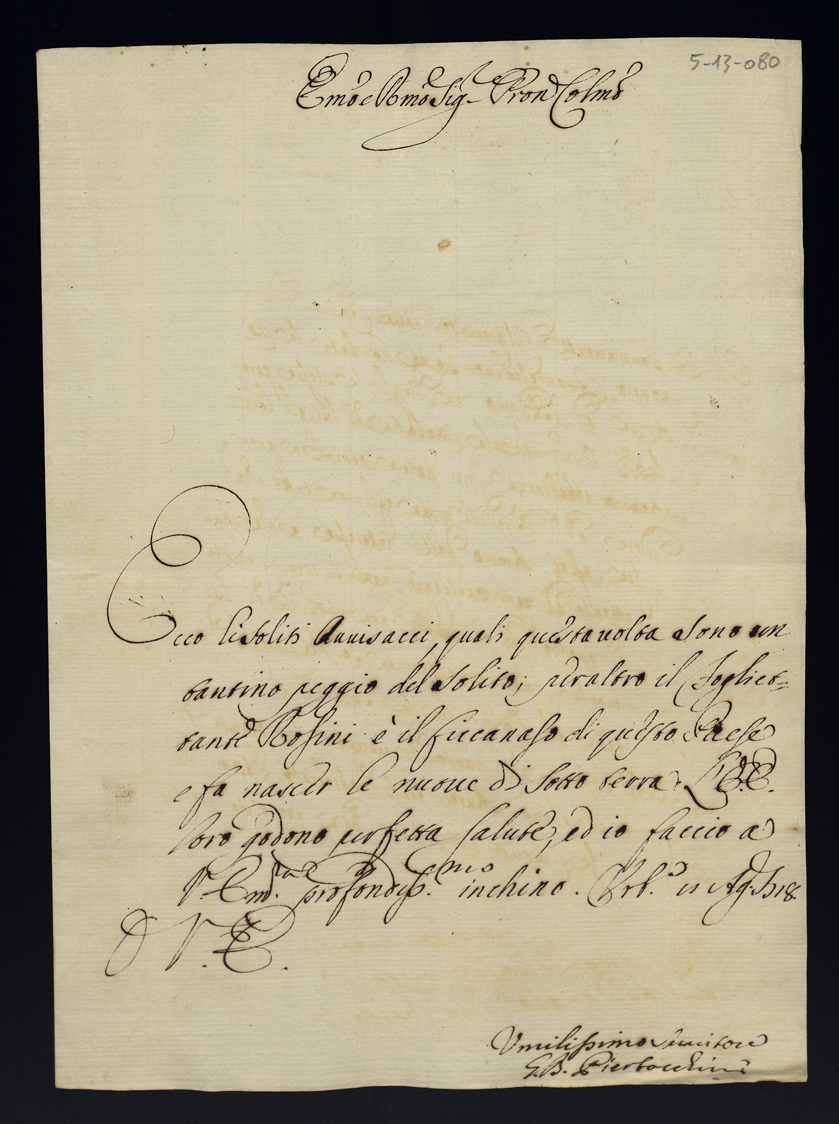 5-13-080
Emo e Rmo Sig.r Pron Colmo
Ecco li soliti Auuisacci, quali questa uolta sono un
tantino peggio del solito; peraltro il Fogliet=
tante Rosini è il ficcanaso di questo Paese
e fa nascer le nuoue di sotto terra.
loro godono perfetta salute, ed io faccio a
V. Em.za profondiss.mo inchino. Urb.o 11 Ag.
D V. E.
Umilissimo Seruitore
G. B. Piertocchini